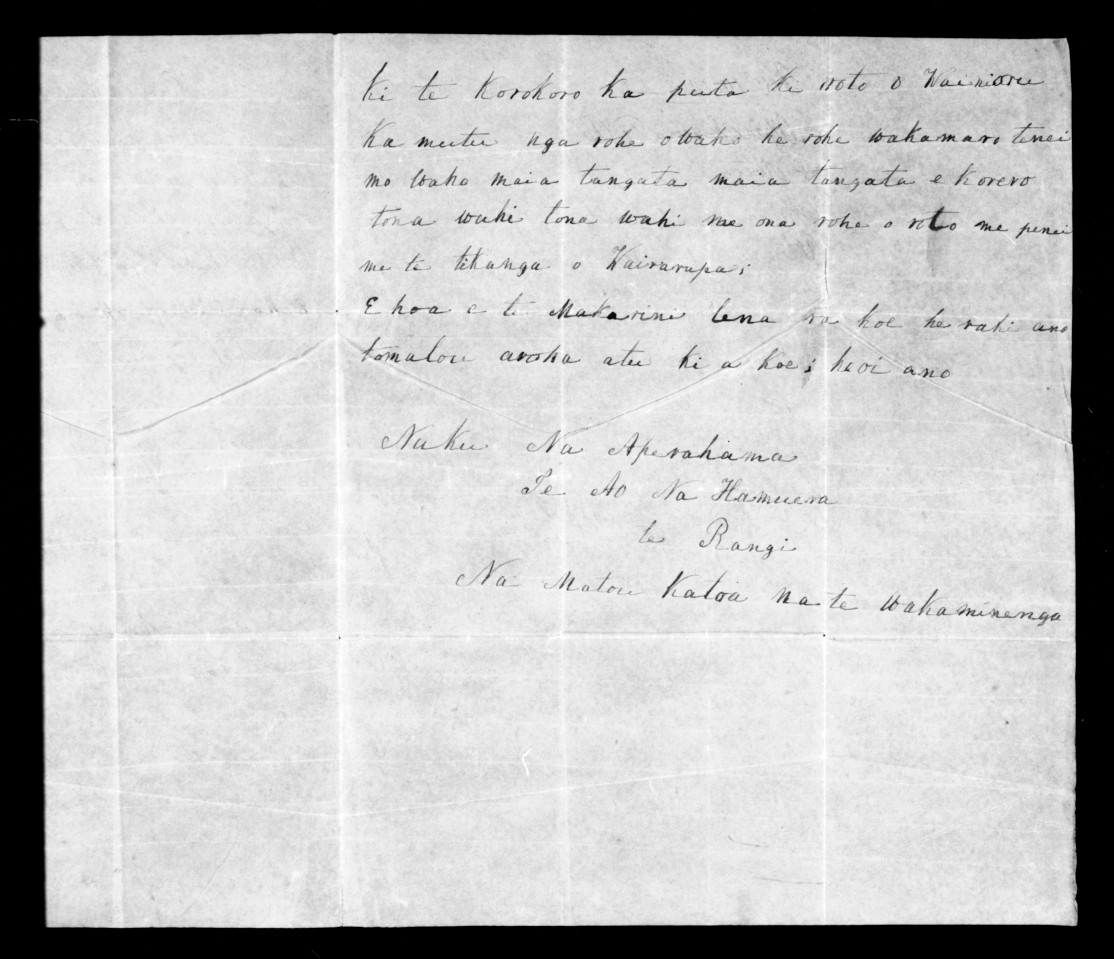 ki te Korokoro ka puta ki roto o Wainioru
Ka mutu nga rohe o waho he rohe wakamaro tenei
mo waho maia tangata maia tangata e korero
tona wahi tona wahi me ona rohe o roto me penei
me te tikanga o Wairarapa;
E hoa e te Makarini tena ra koe he rahi ano
tomatou aroha atu ki a koe; heoi ano
Naku Na Aperahama
Te Ao Na Hamuera
te Rangi
Na Matou Katoa na te wakaminenga